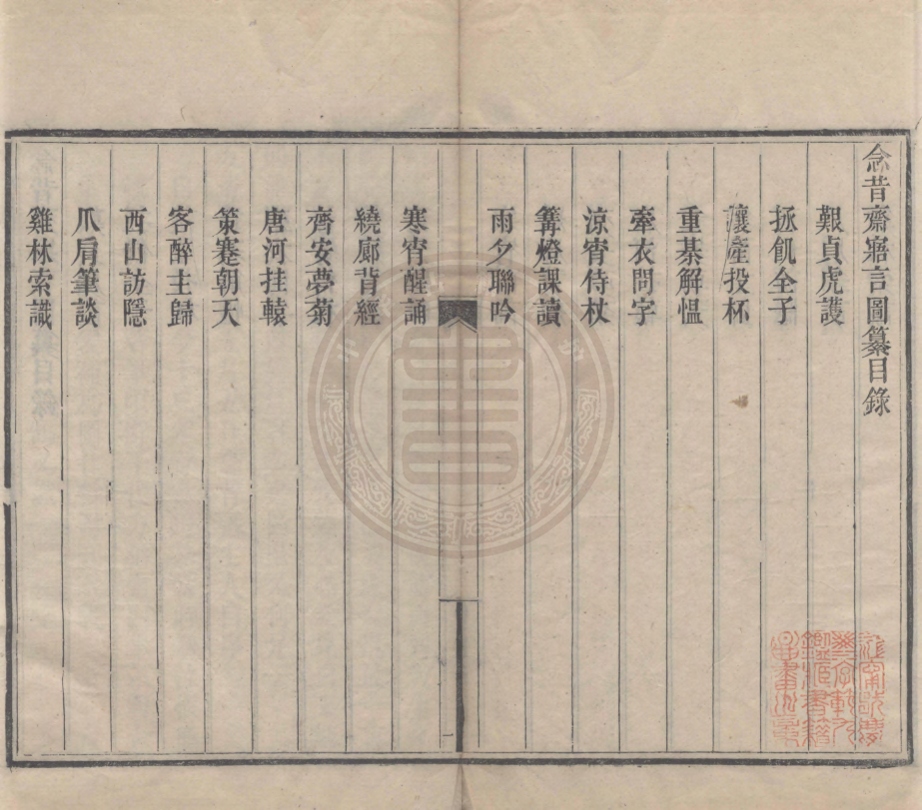 念昔齋寤言圖纂目錄
艱貞虎護
拯飢全子
讓產投杯
重棊解慍
牽衣問字
涼宵侍杖
篝燈課讀
雨夕聯吟
寒宵醒誦
繞廊背經
齊安夢菊
唐河挂轅
策蹇朝天
客醉主歸
西山訪隱
爪肩筆談
雞林索識